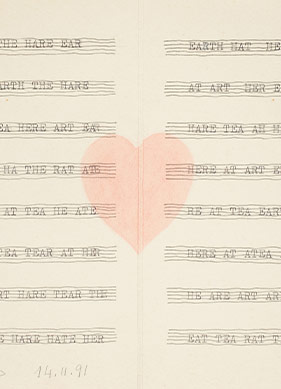 THE HARE EAR
EARTH THE HARE
TEA HERE ART EAR
HA THE RAT ATE
AT TEA HE ATE
TEA TEAR AT HER
ART HARE TEAR THE
HARE HATE HER
14.11.91
EARTH HAT HE
AT ART HER E
HARE TEA AH H
HERE AT ART E
HE AT TEA EAR
HERE AT ATEA
HE ARE ART AR
EAT TEA RAT T